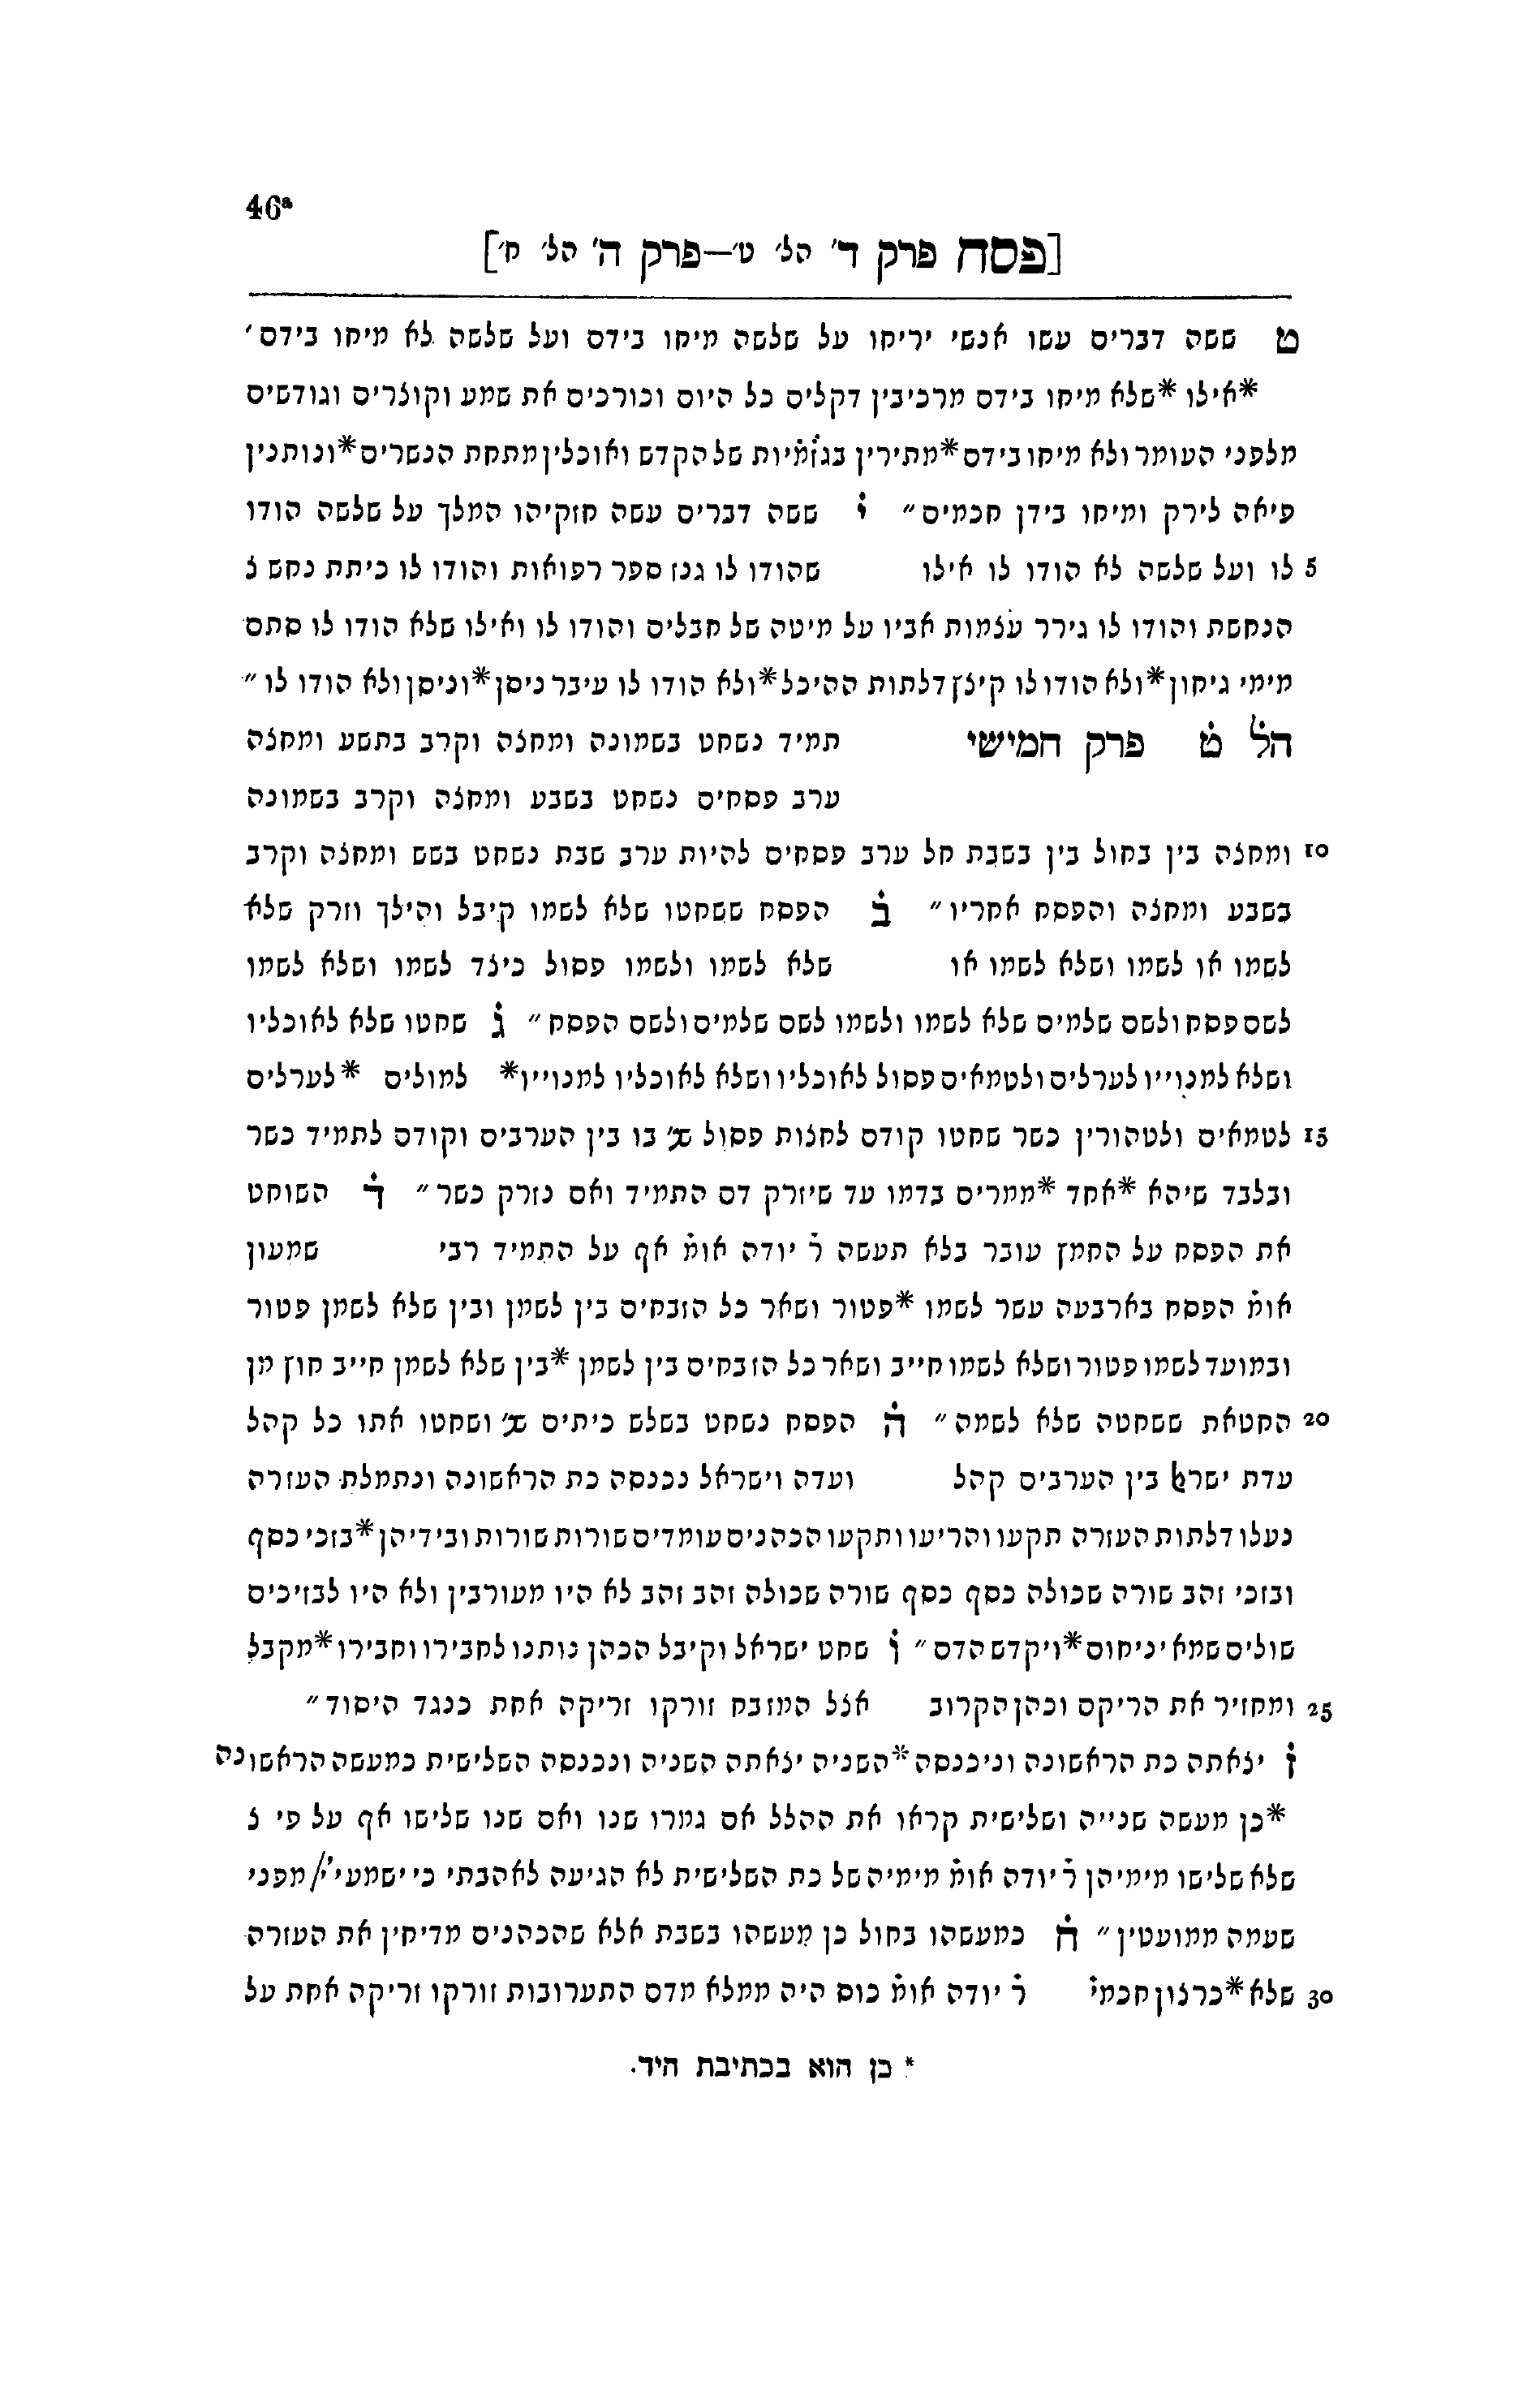 46ª
[פסח פרק ד' הל' ט'—פרק ה' הל' ח']
ט ששה דברים עשו אנשי יריחו על שלשה מיחו בידם ועל שלשה לא מיחו בידם׳
*אילו *שלא מיחו בידם מרכיבין דקלים כל היום וכורכים את שמע וקוצרים וגודשים
מלפני העומר ולא מיחו בידם *מתירין בגזֹמֹיות של הקדש ואוכלין מתחת הנשרים *ונותנין
פיאה לירק ומיחו בידן חכמים״ יֹ ששה דברים עשה חזקיהו המלך על שלשה הודו
5 לו ועל שלשה לא הודו לו אילו שהודו לו גנז ספר רפואות והודו לו כיתת נחש צ
הנחשת והודו לו גירר עצמות אביו על מיטה של חבלים והודו לו ואילו שלא הודו לו סתם
מימי גיחון *ולא הודו לו קיצץ דלתות ההיכל *ולא הודו לו עיבר ניסן *וניסן ולא הודו לו״
הלֹ טֹ פרק חמישי תמיד נשחט בשמונה ומחצה וקרב בתשע ומחצה
ערב פסחים נשחט בשבע ומחצה וקרב בשמונה
10 ומחצה בין בחול בין בשבת חל ערב פסחים להיות ערב שבת נשחט בשש ומחצה וקרב
בשבע ומחצה והפסח אחריו״ בֹ הפסח ששחטו שלא לשמו קיבל והילך וזרק שלא
לשמו או לשמו ושלא לשמו או שלא לשמו ולשמו פסול כיצד לשמו ושלא לשמו
לשם פסח ולשם שלמים שלא לשמו ולשמו לשם שלמים ולשם הפסח״ גֹ שחטו שלא לאוכליו
ושלא למנוייו לערלים ולטמאים פסול לאוכליו ושלא לאוכליו למנוייו* למולים *לערלים
15 לטמאים ולטהורין כשר שחטו קודם לחצות פסול ﭏ׳ בו בין הערבים וקודם לתמיד כשר
ובלבד שיהא *אחד *ממרים בדמו עד שיזרק דם התמיד ואם נזרק כשר״ דֹ השוחט
את הפסח על החמץ עובר בלא תעשה רֹ יודה אומֹ אף על התמיד רבי שמעון
אומֹ הפסח בארבעה עשר לשמו *פטור ושאר כל הזבחים בין לשמן ובין שלא לשמן פטור
ובמועד לשמו פטור ושלא לשמו חייב ושאר כל הזבחים בין לשמן *בין שלא לשמן חייב חוץ מן
20 החטאת ששחטה שלא לשמה״ הֹ הפסח נשחט בשלש כיתים ﭏ׳ ושחטו אתו כל קהל
עדת ישרﭏ בין הערבים קהל ועדה וישראל נכנסה כת הראשונה ונתמלת העזרה
נעלו דלתות העזרה תקעו והריעו ותקעו הכהנים עומדים שורות שורות ובידיהן *בזכי כסף
ובזכי זהב שורה שכולה כסף כסף שורה שכולה זהב זהב לא היו מעורבין ולא היו לבזיכים
שולים שמא יניחום *ויקדש הדם״ וֹ שחט ישראל וקיבל הכהן נותנו לחבירו וחבירו *מקבל
25 ומחזיר את הריקם וכהן הקרוב אצל המזבח זורקו זריקה אחת כנגד היסוד״
זֹ יצאתה כת הראשונה וניכנסה *השניה יצאתה השניה ונכנסה השלישית כמעשה הראשונה
*כן מעשה שנייה ושלישית קראו את ההלל אם גמרו שנו ואם שנו שלישו אף על פי צ
שלא שלישו מימיהן רֹ יודה אומֹ מימיה של כת השלישית לא הגיעה לאהבתי כי ישמע יֹי/ מפני
שעמה ממועטין״ חֹ כמעשהו בחול כן מעשהו בשבת אלא שהכהנים מדיחין את העזרה
30 שלא *כרצון חכמיֹ רֹ יודה אומֹ כוס היה ממלא מדם התערובות זורקו זריקה אחת על
* כן הוא בכתיבת היד.